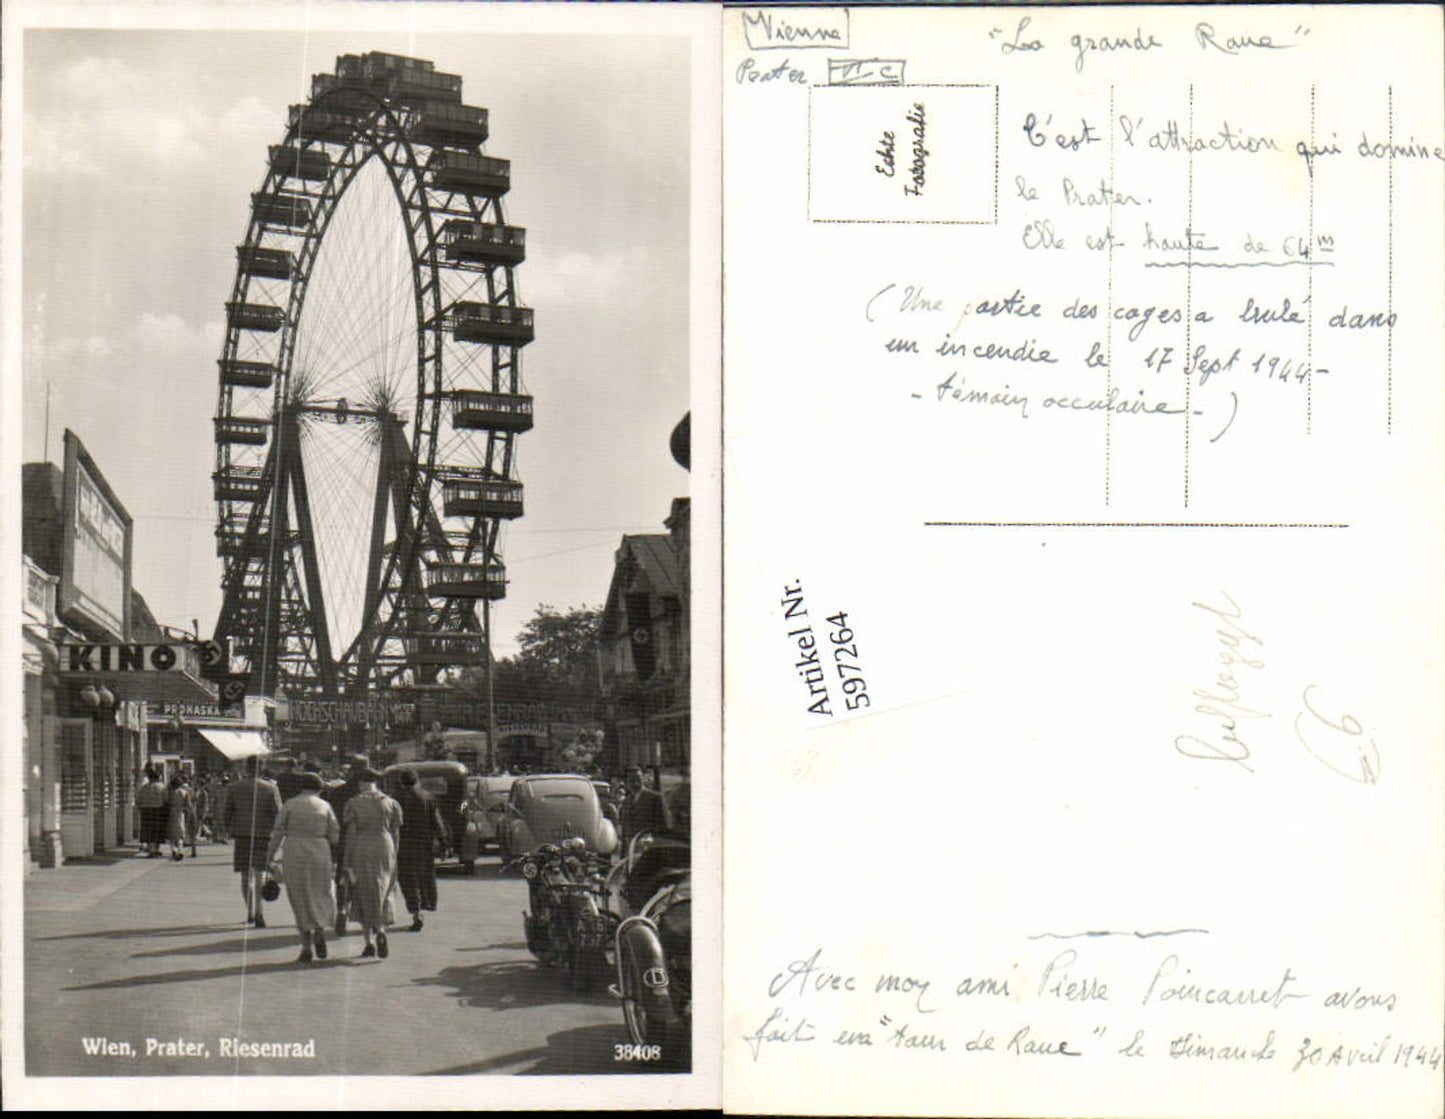 KINO
PROHASKA
HOCHSCHAUBAHN
Wien, Prater, Riesenrad
38408
Vienne
Prater II-C
"La grande Roue"
Echte
Fotografie
C'est l'attraction qui domine
le Prater.
Elle est haute de 64 m
(Une partie des cages a brulé dans
un incendie le 17 Sept 1944-
- témoin occulaire - )
Artikel Nr.
597264
66
Avec mon ami Pierre Poincarret avons
fait en "tour de Roue" le Dimanche 30 Avril 1944